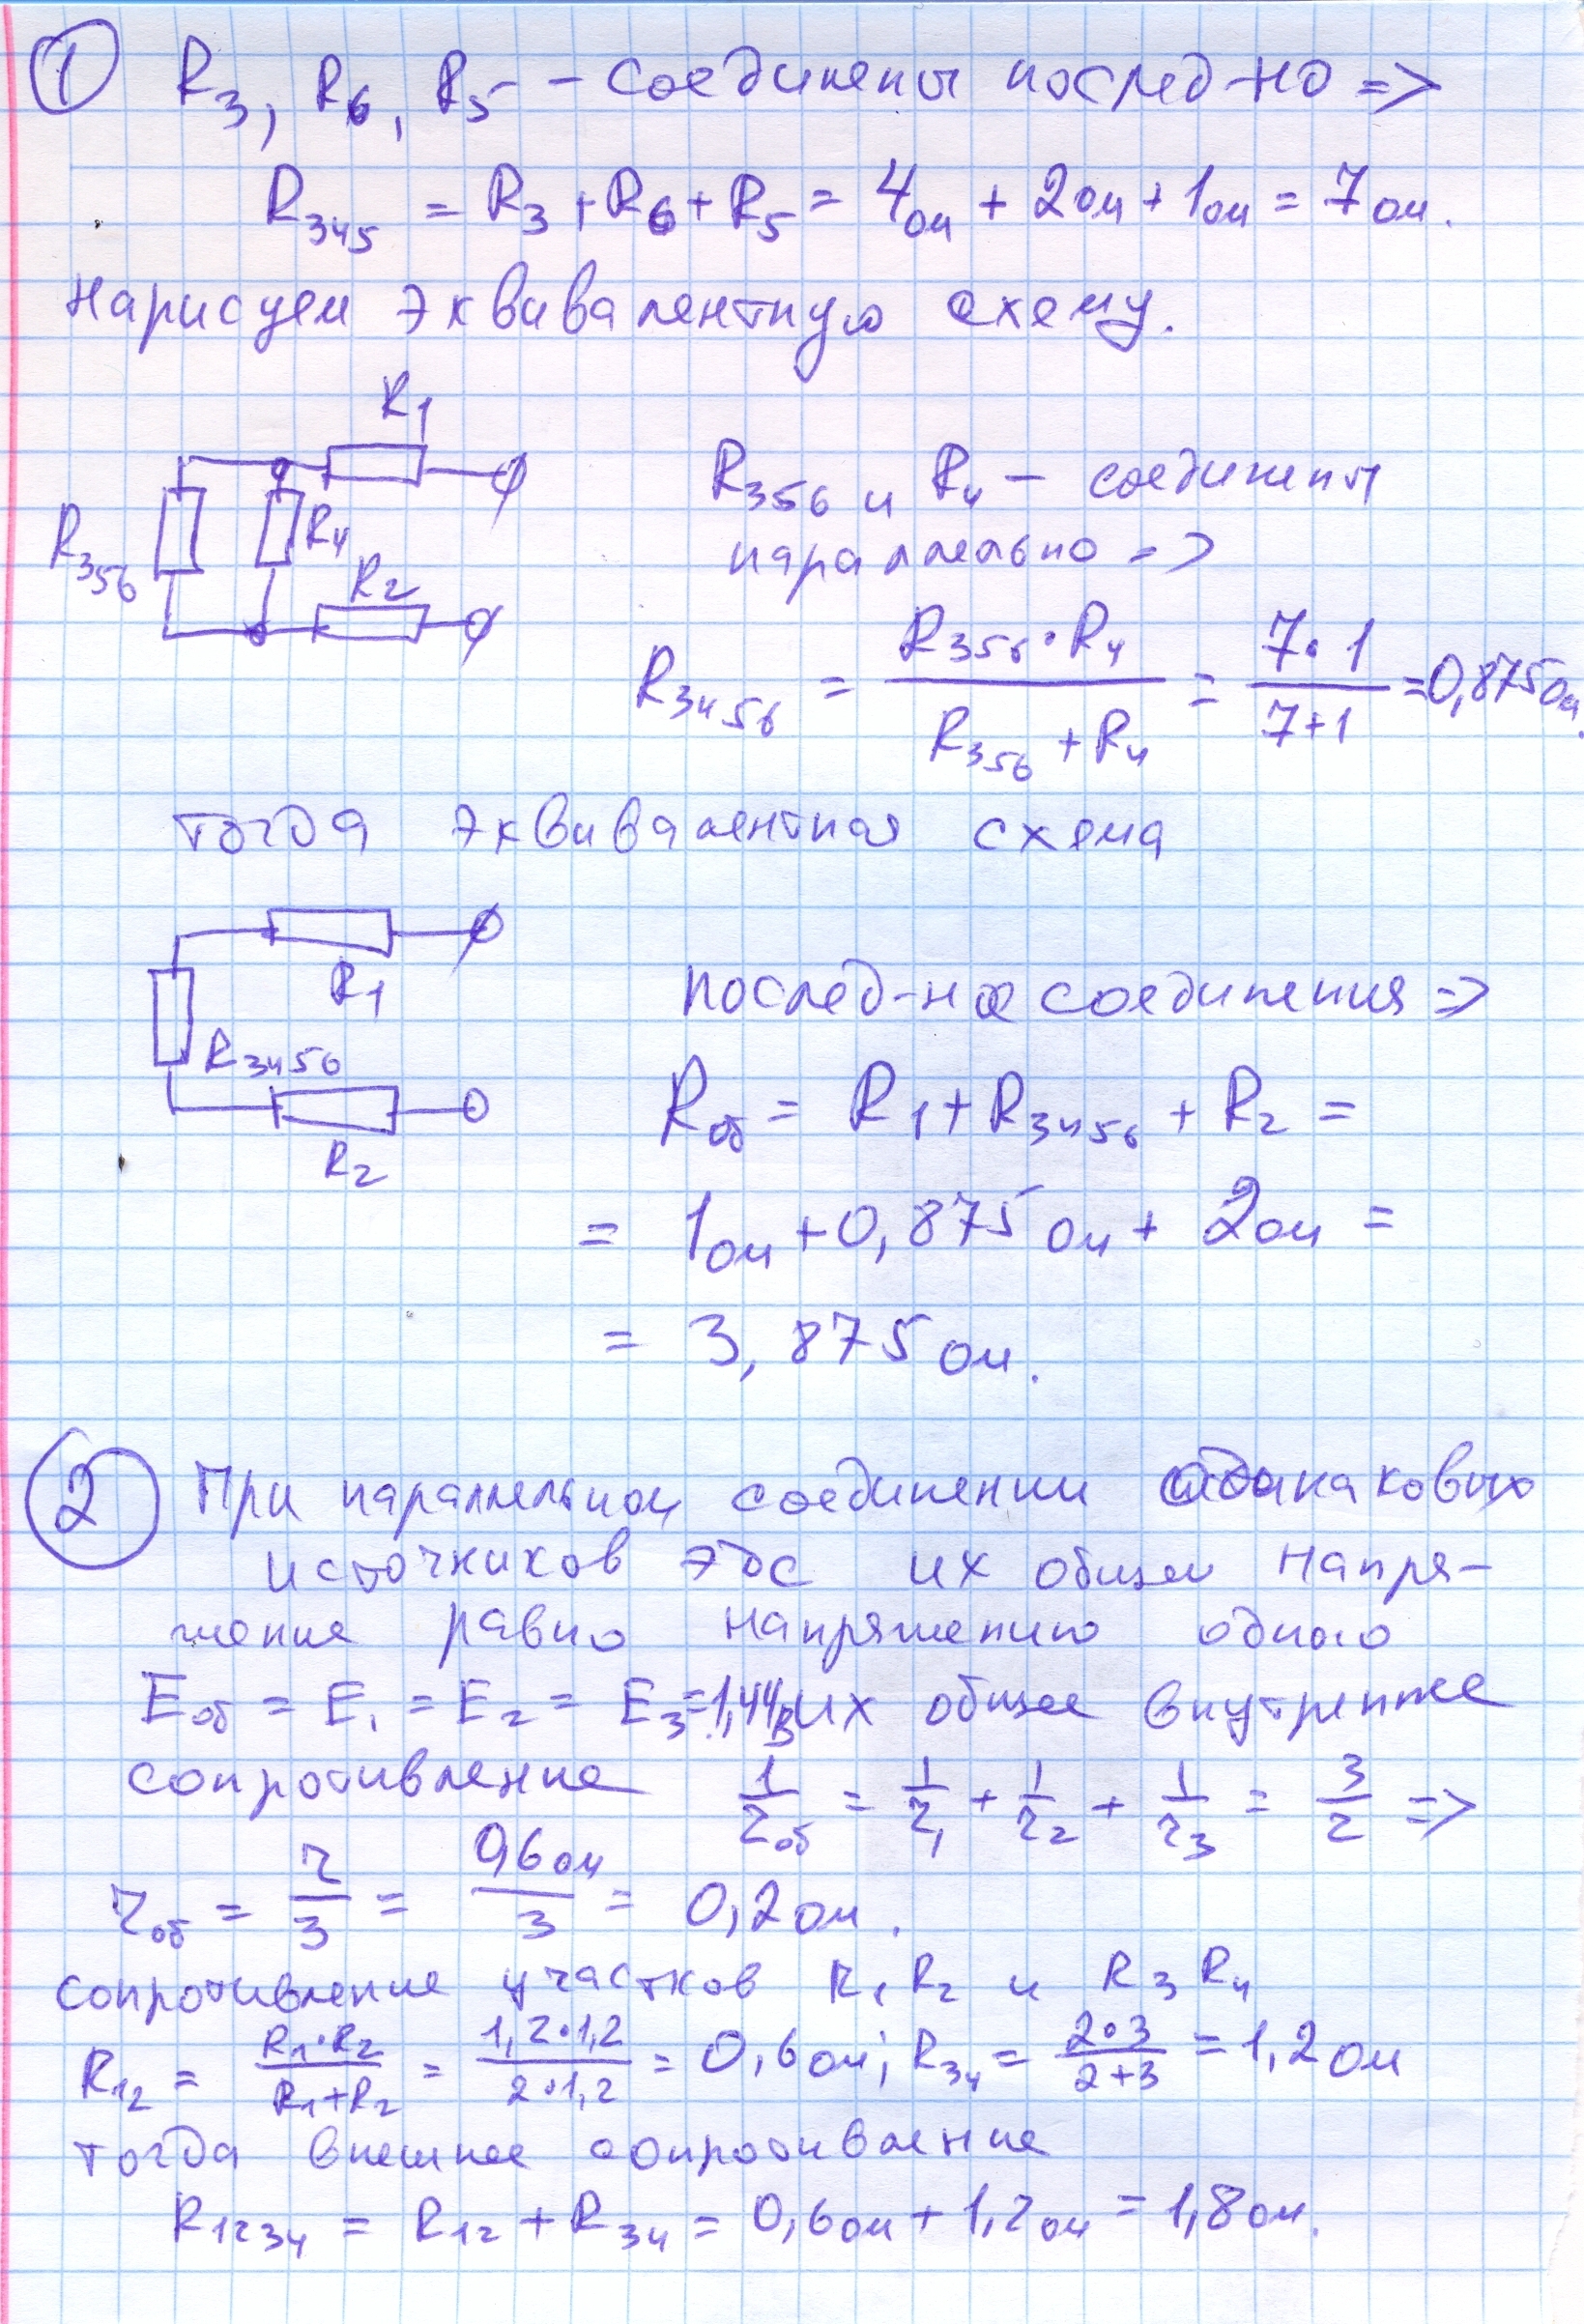 ① R3, R6, R5 - соединены послед-но =>
R345 = R3 + R6 + R5 = 4ом + 2ом + 1ом = 7ом.
Нарисуем эквивалентную схему.
R1
R356 и R4 - соединены
R356
R4
параллельно =>
R2
R3456 = R356·R4 / R356 + R4 = 7·1 / 7+1 = 0,875ом.
тогда эквивалентная схема
R1
послед-ное соединения =>
R3456
Rоб = R1 + R3456 + R2 =
R2
= 1ом + 0,875ом + 2ом =
= 3,875ом.
② При параллельном соединении одинаковых
источников эдс их общее напря-
жение равно напряжению одного
Eоб = E1 = E2 = E3 = 1,44В их общее внутренне
сопротивление 1/rоб = 1/r1 + 1/r2 + 1/r3 = 3/r =>
rоб = r/3 = 0,6ом/3 = 0,2ом.
сопротивление участков R1R2 и R3R4
R12 = R1·R2 / R1+R2 = 1,2·1,2 / 2·1,2 = 0,6ом; R34 = 2·3 / 2+3 = 1,2ом
тогда внешнее сопротивление
R1234 = R12 + R34 = 0,6ом + 1,2ом = 1,8ом.